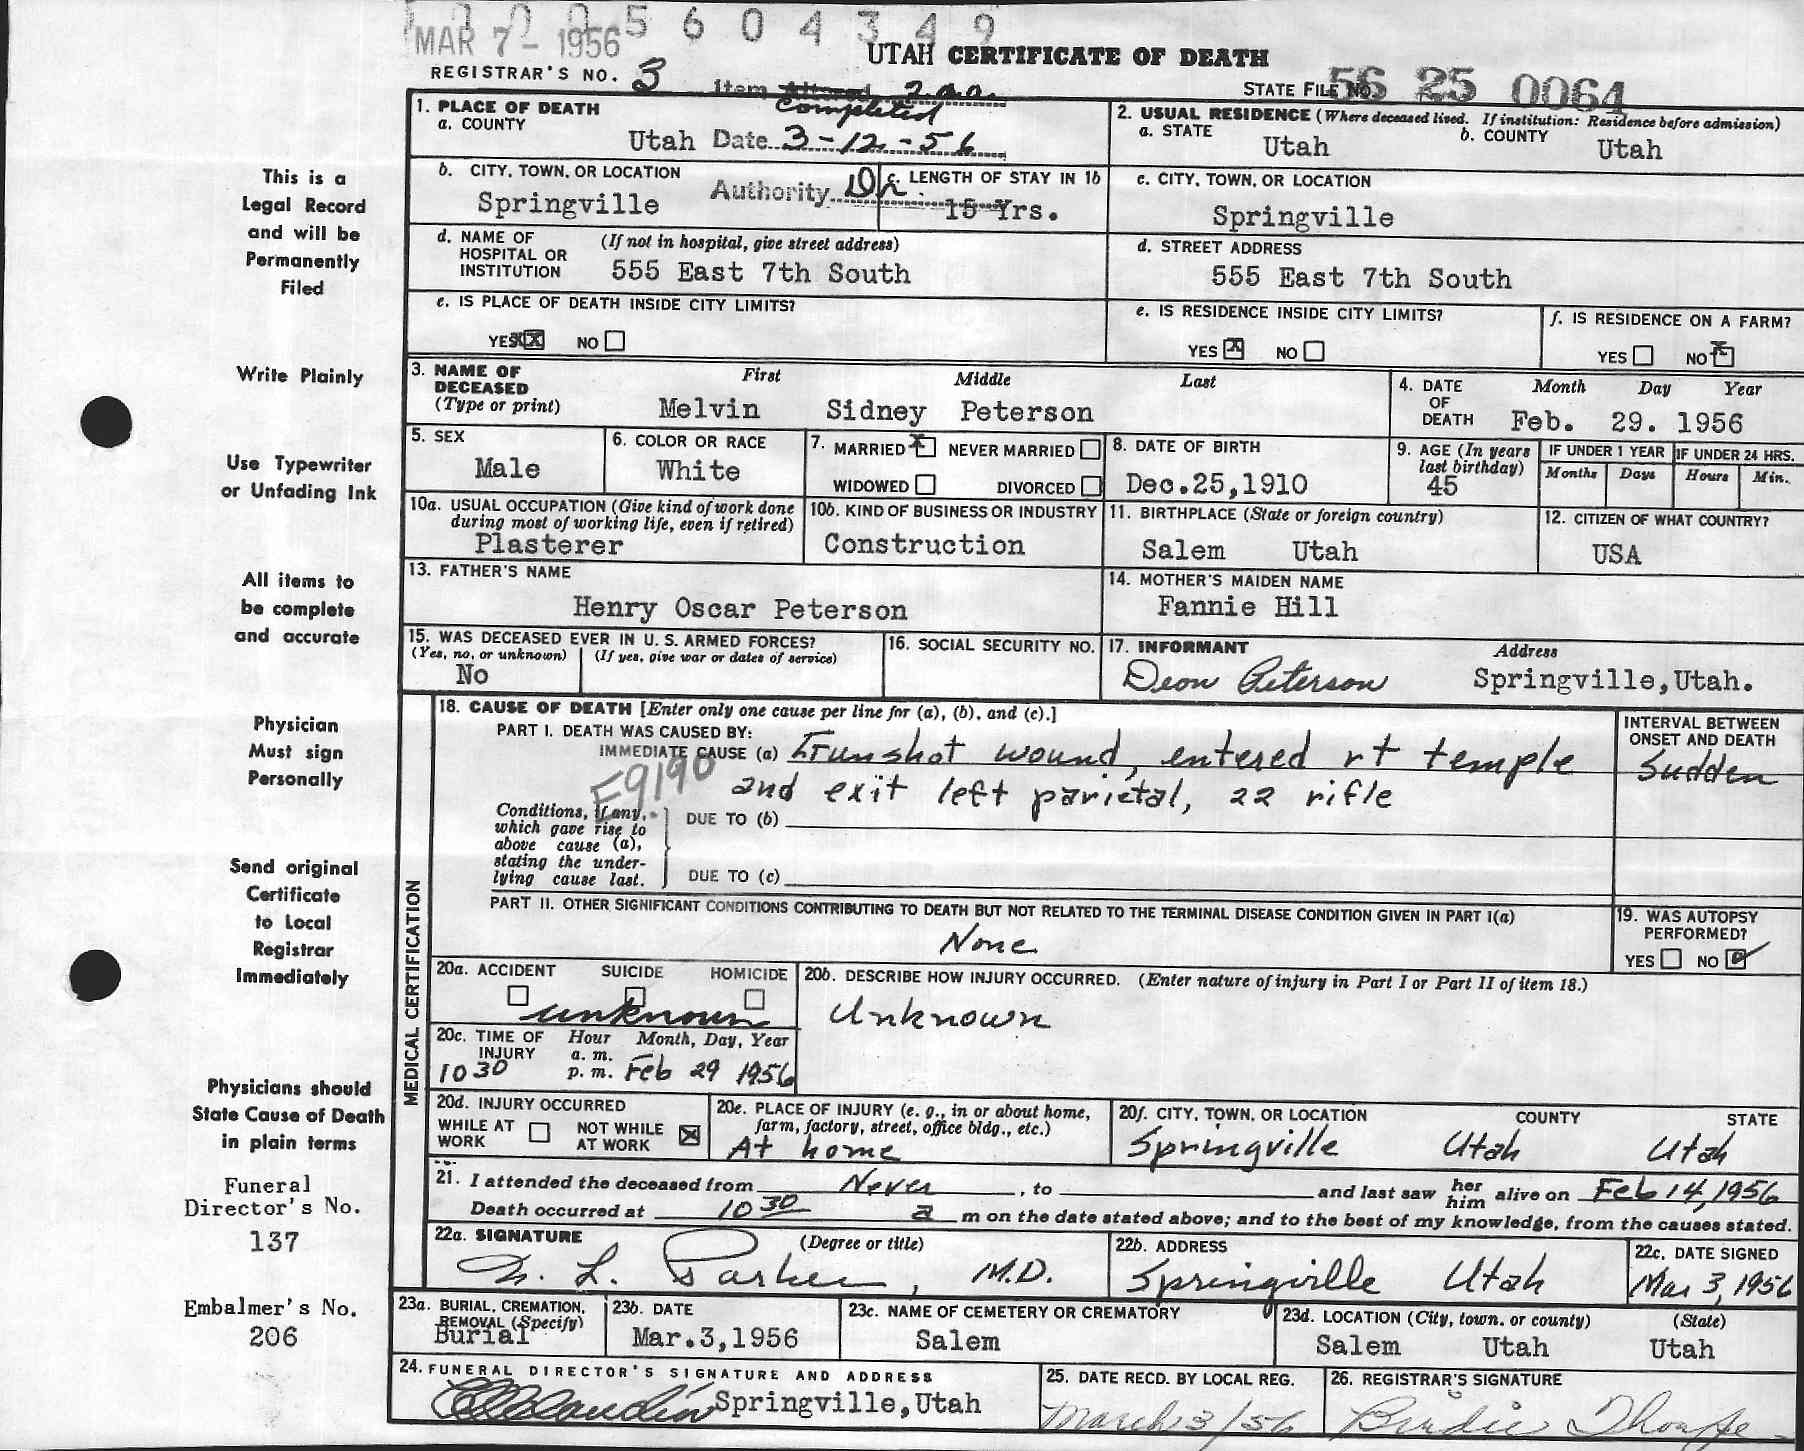 1 0 0 5 6 0 4 3 4 9
MAR 7 - 1956
UTAH CERTIFICATE OF DEATH
REGISTRAR'S NO. 3
Item Altered 20a.
Completed
STATE FILE NO. 56 25 0064
1. PLACE OF DEATH
a. COUNTY
Utah Date 3-12-56
2. USUAL RESIDENCE (Where deceased lived. If institution: Residence before admission)
a. STATE Utah b. COUNTY Utah
b. CITY, TOWN, OR LOCATION
Springville
Authority Dr.
c. LENGTH OF STAY IN 1b
15 Yrs.
c. CITY, TOWN, OR LOCATION
Springville
d. NAME OF HOSPITAL OR INSTITUTION
(If not in hospital, give street address)
555 East 7th South
d. STREET ADDRESS
555 East 7th South
e. IS PLACE OF DEATH INSIDE CITY LIMITS?
YES XX NO
e. IS RESIDENCE INSIDE CITY LIMITS?
YES X NO
f. IS RESIDENCE ON A FARM?
YES NO X
3. NAME OF DECEASED
(Type or print)
First Middle Last
Melvin Sidney Peterson
4. DATE OF DEATH
Month Day Year
Feb. 29. 1956
5. SEX
Male
6. COLOR OR RACE
White
7. MARRIED X NEVER MARRIED
WIDOWED DIVORCED
8. DATE OF BIRTH
Dec.25,1910
9. AGE (In years last birthday)
45
IF UNDER 1 YEAR
Months Days
IF UNDER 24 HRS.
Hours Min.
10a. USUAL OCCUPATION (Give kind of work done
during most of working life, even if retired)
Plasterer
10b. KIND OF BUSINESS OR INDUSTRY
Construction
11. BIRTHPLACE (State or foreign country)
Salem Utah
12. CITIZEN OF WHAT COUNTRY?
USA
13. FATHER'S NAME
Henry Oscar Peterson
14. MOTHER'S MAIDEN NAME
Fannie Hill
15. WAS DECEASED EVER IN U. S. ARMED FORCES?
(Yes, no, or unknown) (If yes, give war or dates of service)
No
16. SOCIAL SECURITY NO.
17. INFORMANT Address
Deon Peterson Springville,Utah.
MEDICAL CERTIFICATION
18. CAUSE OF DEATH [Enter only one cause per line for (a), (b), and (c).]
PART I. DEATH WAS CAUSED BY:
IMMEDIATE CAUSE (a) Gunshot wound, entered rt temple
and exit left parietal, 22 rifle
E9190
INTERVAL BETWEEN
ONSET AND DEATH
Sudden
Conditions, if any,
which gave rise to
above cause (a),
stating the under-
lying cause last.
DUE TO (b)
DUE TO (c)
PART II. OTHER SIGNIFICANT CONDITIONS CONTRIBUTING TO DEATH BUT NOT RELATED TO THE TERMINAL DISEASE CONDITION GIVEN IN PART I(a)
None
19. WAS AUTOPSY
PERFORMED?
YES NO
20a. ACCIDENT SUICIDE HOMICIDE
unknown
20b. DESCRIBE HOW INJURY OCCURRED. (Enter nature of injury in Part I or Part II of item 18.)
Unknown
20c. TIME OF INJURY
Hour Month, Day, Year
a. m.
10 30 p. m. Feb 29 1956
20d. INJURY OCCURRED
WHILE AT WORK NOT WHILE AT WORK X
20e. PLACE OF INJURY (e. g., in or about home,
farm, factory, street, office bldg., etc.)
At home
20f. CITY, TOWN, OR LOCATION COUNTY STATE
Springville Utah Utah
21. I attended the deceased from Never, to and last saw her him alive on Feb 14, 1956
Death occurred at 10 30 a m on the date stated above; and to the best of my knowledge, from the causes stated.
22a. SIGNATURE (Degree or title)
L. Parker, M.D.
22b. ADDRESS
Springville Utah
22c. DATE SIGNED
Mar 3, 1956
23a. BURIAL, CREMATION,
REMOVAL (Specify)
Burial
23b. DATE
Mar.3,1956
23c. NAME OF CEMETERY OR CREMATORY
Salem
23d. LOCATION (City, town, or county) (State)
Salem Utah Utah
24. FUNERAL DIRECTOR'S SIGNATURE AND ADDRESS
Springville,Utah
25. DATE RECD. BY LOCAL REG.
March 3/56
26. REGISTRAR'S SIGNATURE
Birdie Thorpe
This is a
Legal Record
and will be
Permanently
Filed
Write Plainly
Use Typewriter
or Unfading Ink
All items to
be complete
and accurate
Physician
Must sign
Personally
Send original
Certificate
to Local
Registrar
Immediately
Physicians should
State Cause of Death
in plain terms
Funeral
Director's No.
137
Embalmer's No.
206